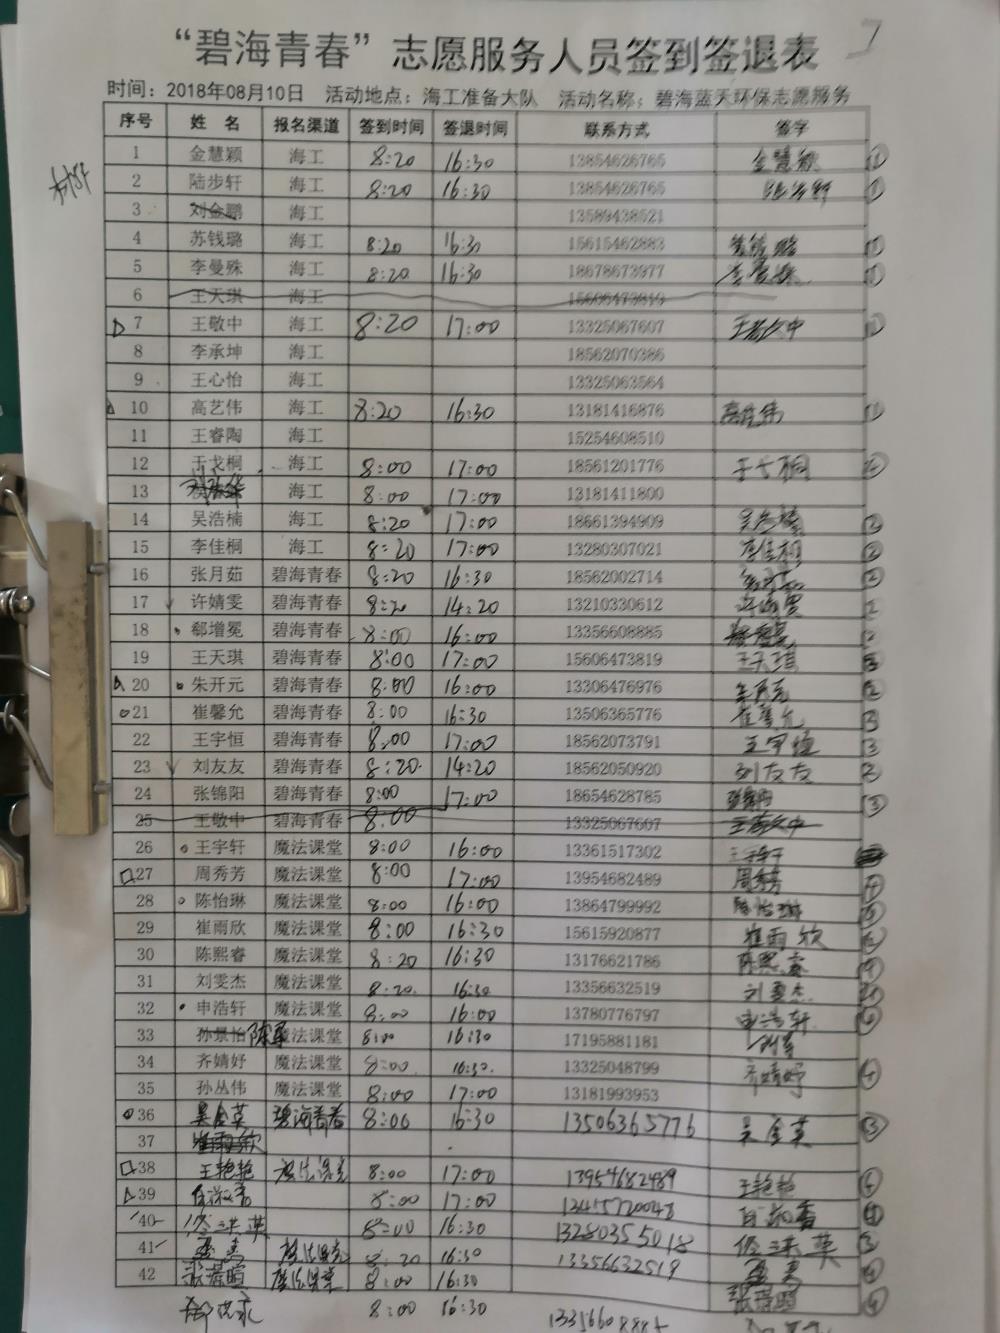 7
“碧海青春”志愿服务人员签到签退表
时间：2018年08月10日 活动地点：海工准备大队 活动名称：碧海蓝天环保志愿服务
序号 姓 名 报名渠道 签到时间 签退时间 联系方式 签字
1 金慧颖 海工 8:20 16:30 13854626765 金慧颖 ①
2 陆步轩 海工 8:20 16:30 13854626765 陆步轩 ①
3 刘金鹏 海工 13589438521
4 苏钱璐 海工 8:20 16:30 15615462883 苏钱璐 ①
5 李曼殊 海工 8:20 16:30 18678673977 李曼殊 ①
6 王天琪 海工 15606473819
7 王敬中 海工 8:20 17:00 13325067607 王敬中 ①
8 李承坤 海工 18562070386
9 王心怡 海工 13325063564
10 高艺伟 海工 8:20 16:30 13181416876 高艺伟 ①
11 王睿陶 海工 15254608510
12 于戈桐 海工 8:00 17:00 18561201776 于戈桐 ②
13 海工 8:00 17:00 13181411800
14 吴浩楠 海工 8:20 17:00 18661394909 吴浩楠 ②
15 李佳桐 海工 8:20 17:00 13280307021 李佳桐 ②
16 张月茹 碧海青春 8:20 16:30 18562002714 张月茹 ②
17 许婧雯 碧海青春 8:20 14:20 13210330612 许婧雯 2
18 郗增冕 碧海青春 8:00 16:00 13356608885 2
19 王天琪 碧海青春 8:00 17:00 15606473819 王天琪
20 朱开元 碧海青春 8:00 16:00 13306476976 朱开元 ②
21 崔馨允 碧海青春 8:00 16:30 13506365776 崔馨允 ③
22 王宇恒 碧海青春 8:00 17:00 18562073791 王宇恒 ③
23 刘友友 碧海青春 8:20 14:20 18562050920 刘友友 ②
24 张锦阳 碧海青春 8:00 17:00 18654628785 张锦阳 ③
25 王敬中 碧海青春 8:00 13325067607 王敬中
26 王宇轩 魔法课堂 8:00 16:00 13361517302 王宇轩
27 周秀芳 魔法课堂 8:00 17:00 13954682489 周秀芳 ④
28 陈怡琳 魔法课堂 8:00 16:00 13864799992 陈怡琳
29 崔雨欣 魔法课堂 8:00 16:30 15615920877 崔雨欣
30 陈熙睿 魔法课堂 8:20 16:30 13176621786 陈熙睿 ④
31 刘雯杰 魔法课堂 8:20 16:30 13356632519 刘雯杰
32 申浩轩 魔法课堂 8:00 16:00 13780776797 申浩轩
33 孙景怡 魔法课堂 8:00 16:30 17195881181
34 齐婧妤 魔法课堂 8:00 16:30 13325048799 齐婧妤 ④
35 孙丛伟 魔法课堂 8:00 17:00 13181993953
36 吴金英 碧海青春 8:00 16:30 13506365776 吴金英 ③
37 崔雨欣
38 王艳艳 魔法课堂 8:00 17:00 13954682489 王艳艳
39 8:00 17:00
40 8:00 16:30 13280355018 ③
41 魔法课堂 8:20 16:30 13356632519 ④
42 魔法课堂 8:00 16:30 ④
8:00 16:30